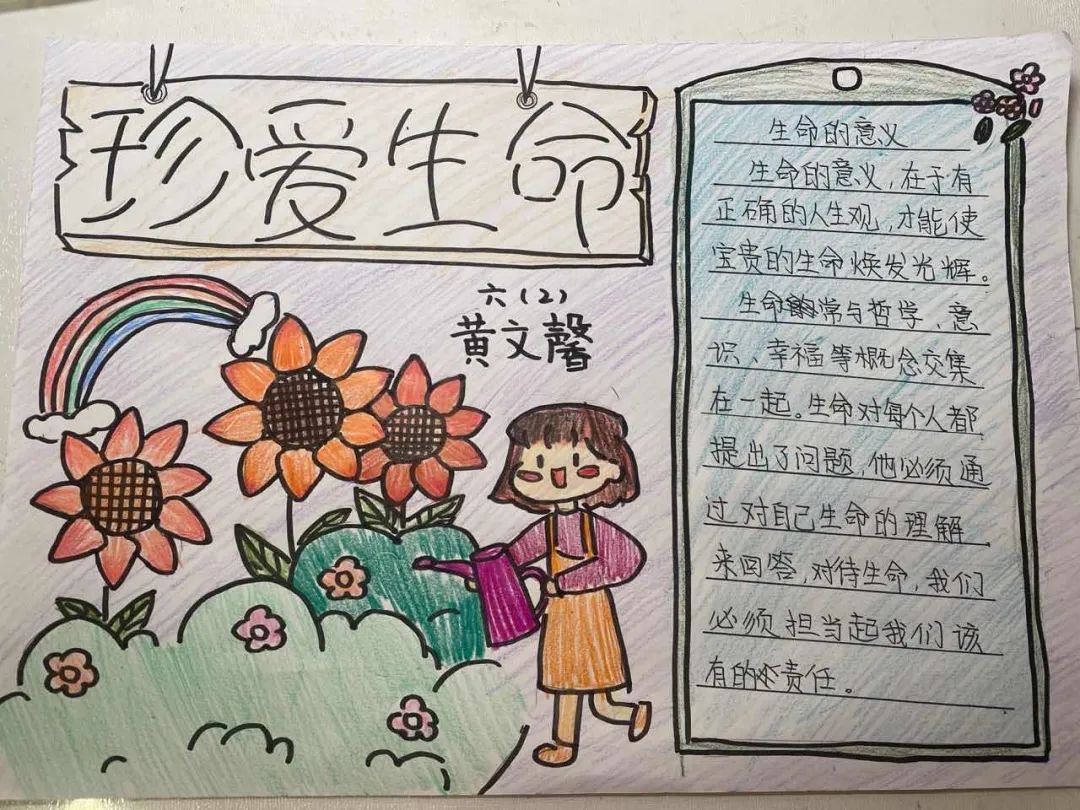 珍爱生命
六(2)
黄文馨
生命的意义
生命的意义,在于有
正确的人生观,才能使
宝贵的生命焕发光辉。
生命常与哲学、意
识、幸福等概念交集
在一起。生命对每个人都
提出了问题,他必须通
过对自己生命的理解
来回答,对待生命,我们
必须担当起我们该
有的责任。